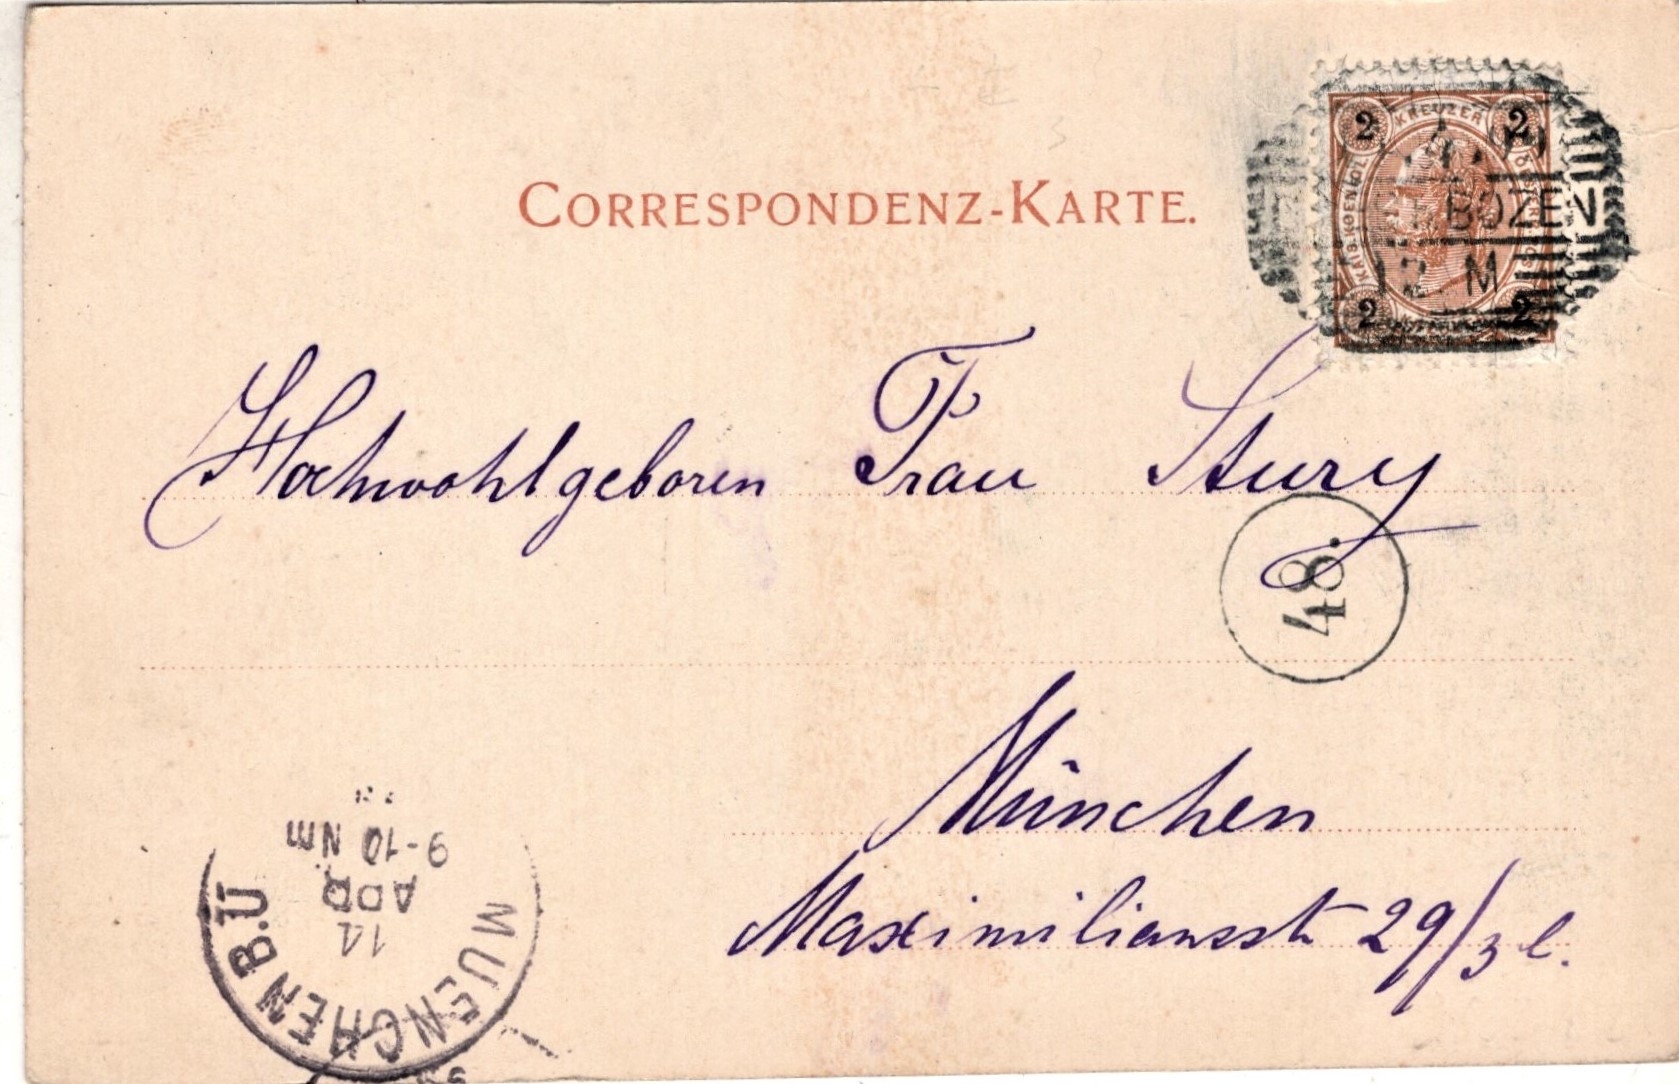 CORRESPONDENZ-KARTE.
2 KREUZER 2
BOZEN
12. M
2 2
Hochwohlgeboren Frau Stury
48.
München
Maximiliansstr 29/3 l.
MUENCHEN B.Ü
14
APR.
9-10 Nm